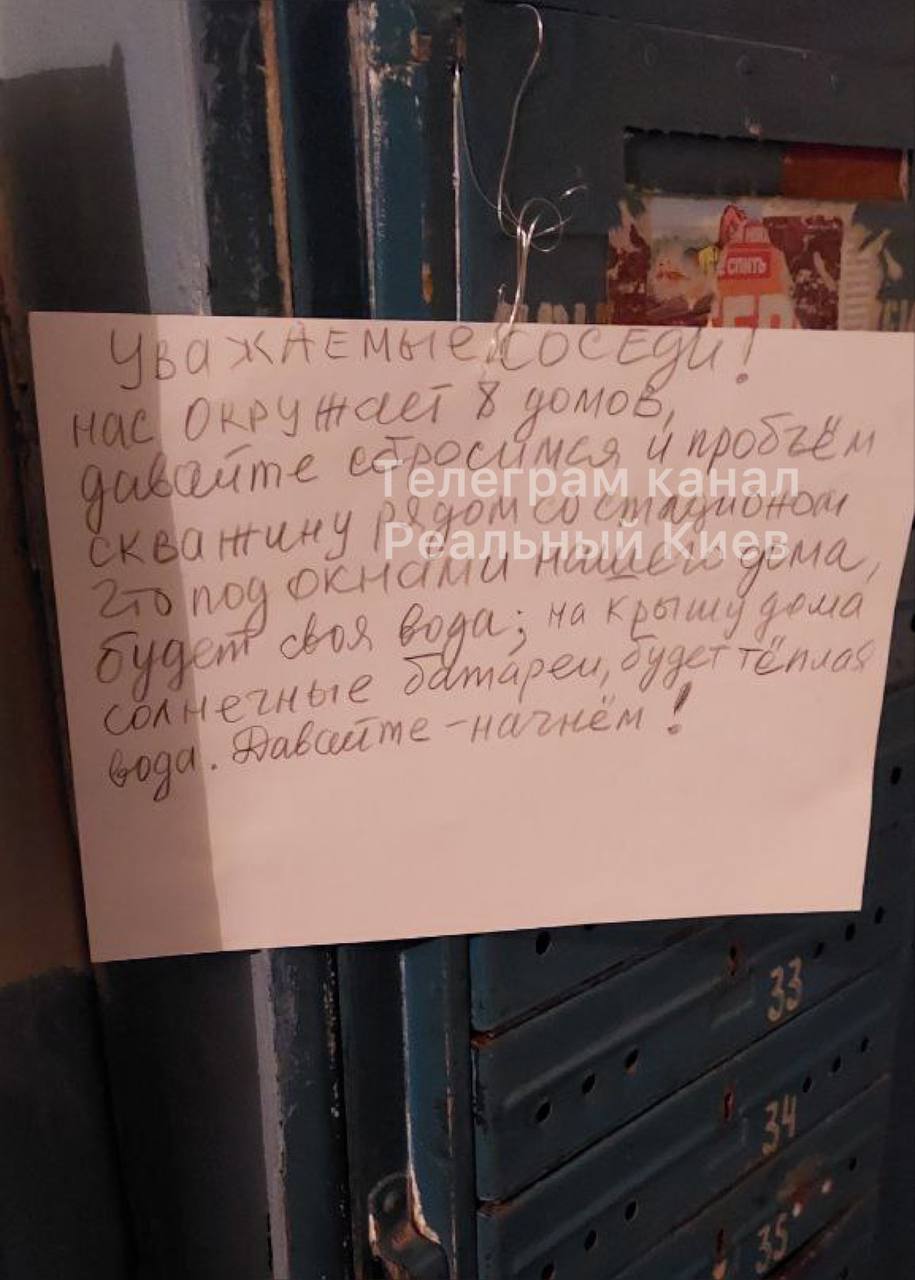 СПИТЬ
Уважаемые соседи!
нас окружает 8 домов,
давайте сбросимся и пробъём
скважину рядом со стадионом
что под окнами нашего дома,
будет своя вода; на крышу дома
солнечные батареи, будет тёплая
вода. Давайте - начнём!
Телеграм канал
Реальный Киев
33
34
35